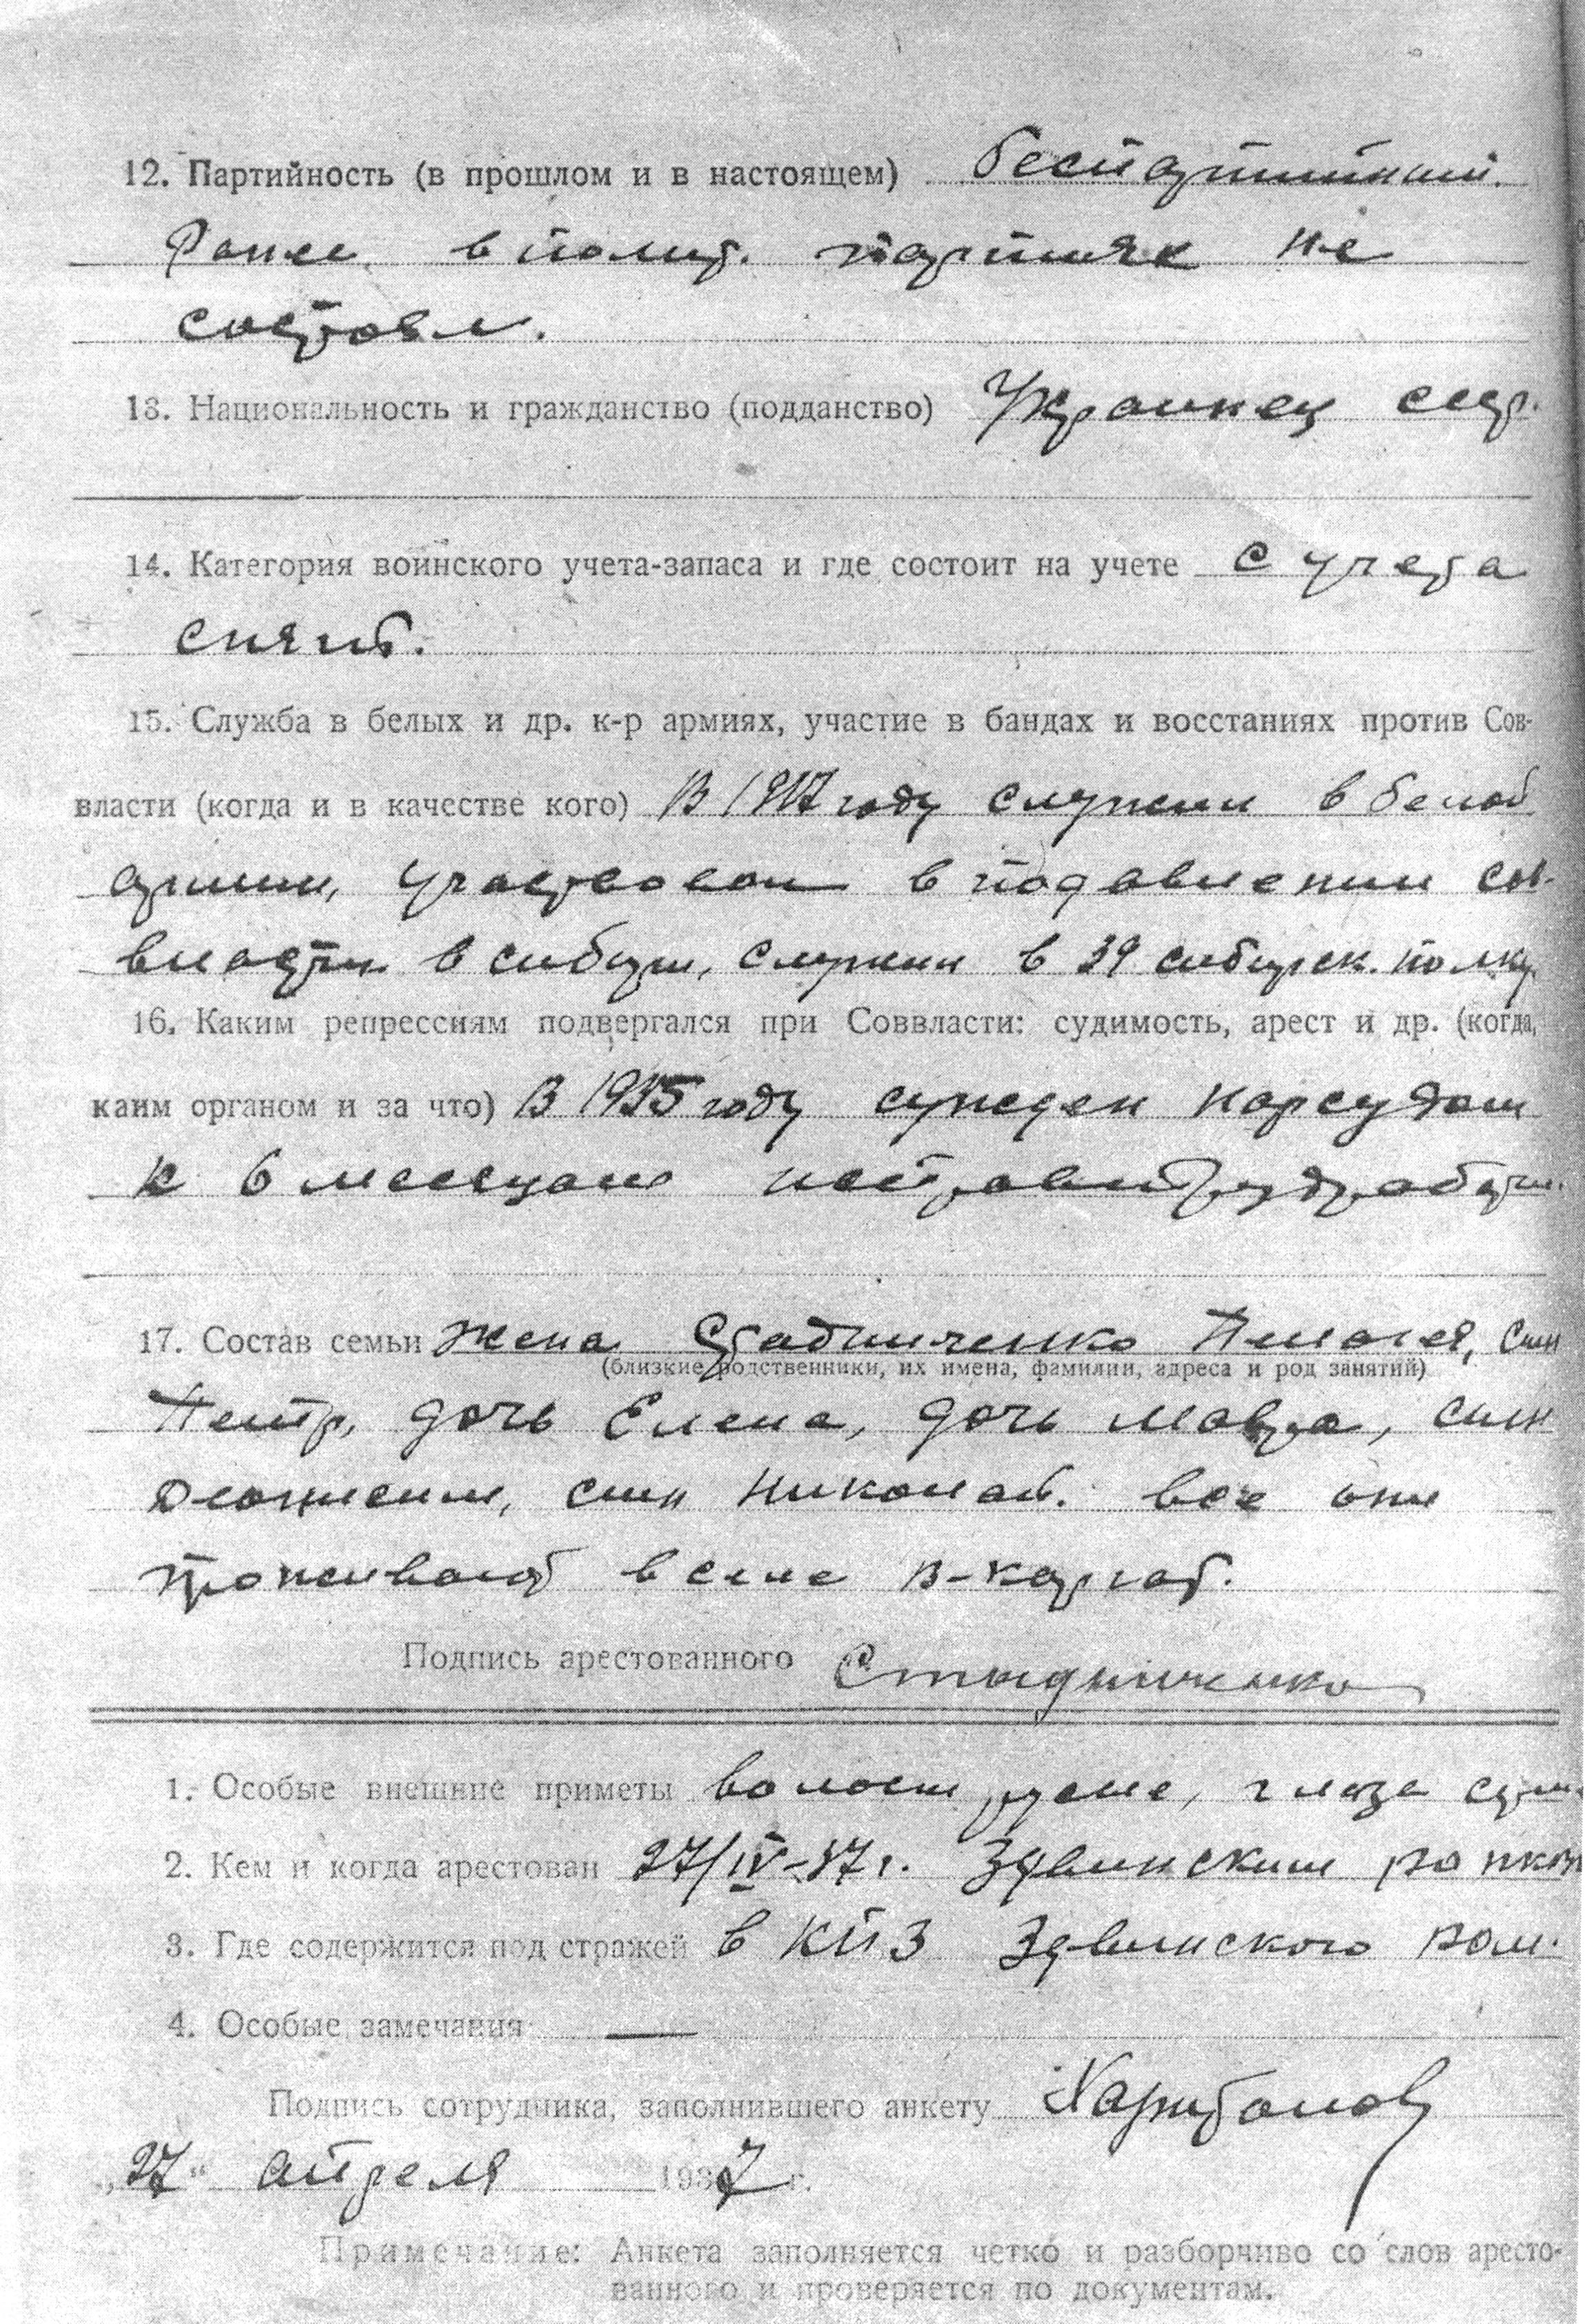 12. Партийность (в прошлом и в настоящем) беспартийный.
Ранее в полит. партиях не
состоял.
13. Национальность и гражданство (подданство) Украинец ссср.
14. Категория воинского учета-запаса и где состоит на учете с учета
снят.
15. Служба в белых и др. к-р армиях, участие в бандах и восстаниях против Сов-
власти (когда и в качестве кого) В 1917 году служил в белой
армии, участвовал в подавлении сов-
власти в сибири, служил в 39 сибирск. полку.
16. Каким репрессиям подвергался при Соввласти: судимость, арест и др. (когда,
каим органом и за что) В 1935 году сужден нарсудом
к 6 месяцам исправтрудработ
17. Состав семьи жена Стадниченко Пелагея, сын
(близкие родственники, их имена, фамилии, адреса и род занятий)
Петр, дочь Елена, дочь Мавра, сын
сын Николай. все они
проживают в селе В-каргат.
Подпись арестованного Стадниченко
1. Особые внешние приметы волосы русые, глаза
2. Кем и когда арестован 27/IV-37 г. Здвинским ро нквд
3. Где содержится под стражей в КПЗ Здвинского ром.
4. Особые замечания —
Подпись сотрудника, заполнившего анкету
„27“ апреля 1937 г.
Примечание: Анкета заполняется четко и разборчиво со слов аресто-
ванного и проверяется по документам.